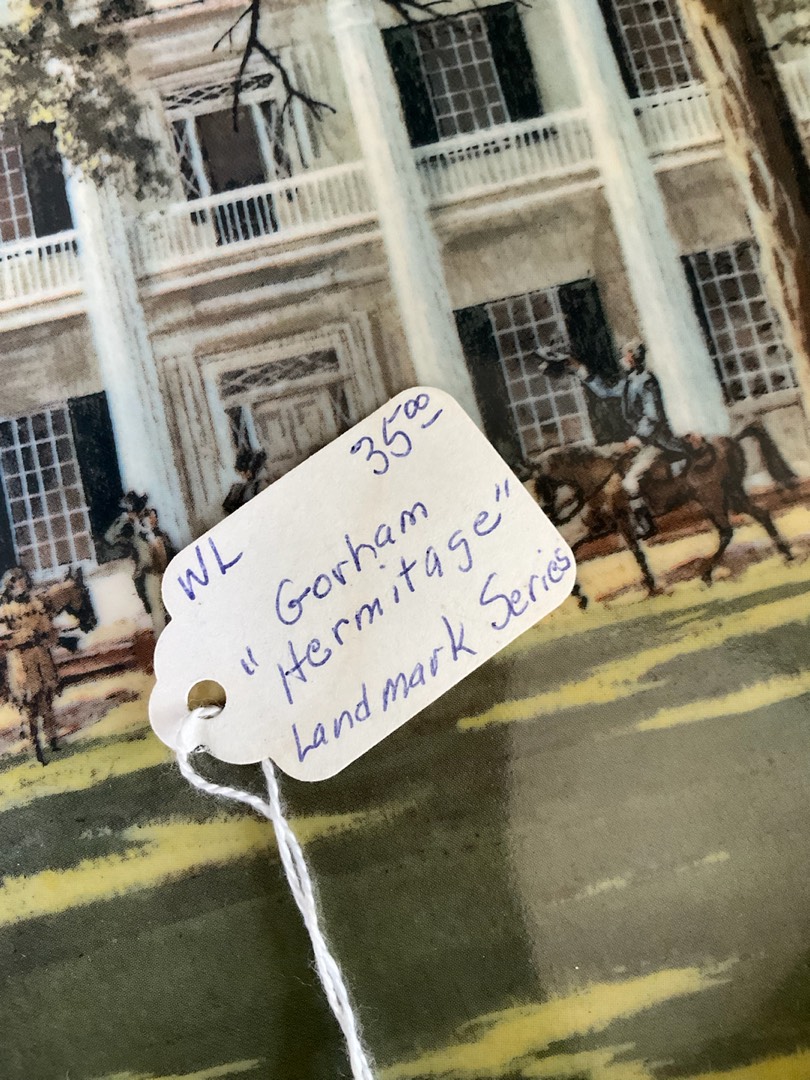 35⁰⁰
WL
Gorham
"Hermitage"
Landmark Series